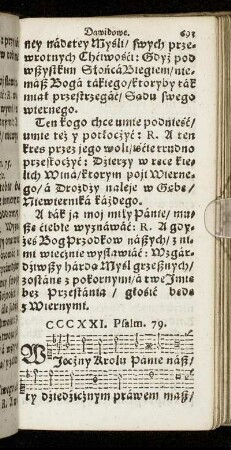 Dawidowe. 693
ney nádetey Myśli/ swych prze=
wrotnych Chćiwośći: Gdyż pod
wszystkim Słońcá Biegiem/ nie=
mász Bogá tákiego/ ktoryby ták
miał przestrzegáć/ Sądu swego
wiernego.
Ten kogo chce umie podnieść/
umie też y potłoczyć: R. A ten
kres przez jego wolí/
przeskoczyć: Dzierży w ręce kie=
lich Winá/ ktorym poji Wierne=
go/ á Drożdży naleje w Gębę/
Niewierniká káżdego.
A ták ja moj miły Pánie/ mu=
szę ćiebie wyznáwáć: R. A gdy=
żeś Bog Przodkow nászych/ z ni=
mi wiecznie wystawiáć: Wzgár=
dźiwszy hárdą Myśl grzesznych/
zostánę z pokornymi/ á twe Imię
bez Przestánia/ głośić będę
z Wiernymi.
CCCXXI. Psalm. 79.
WJeczny Krolu Pánie nász/
ty dziedzicznym práwem mász/